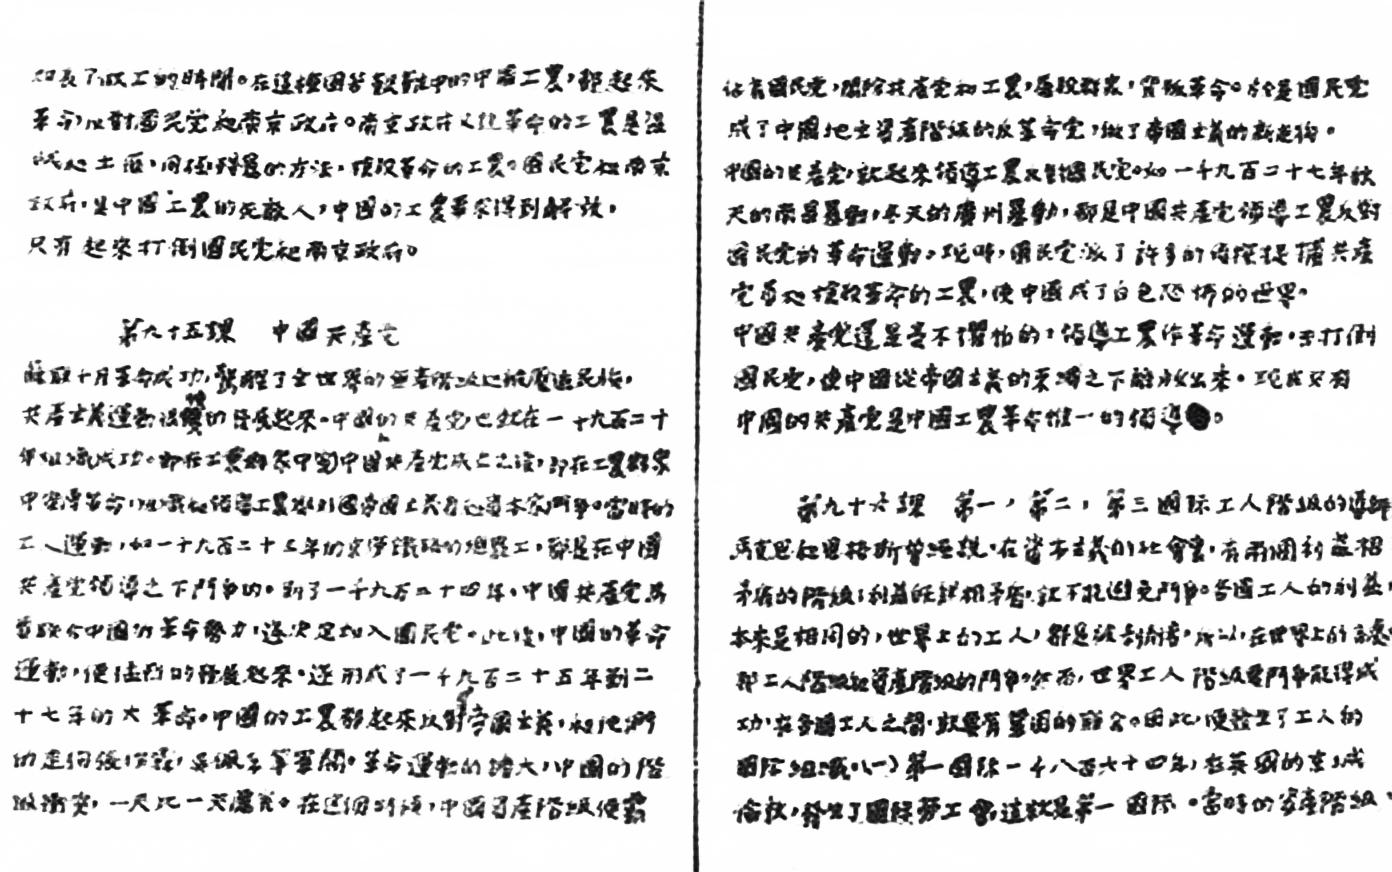 加長了做工的時間。在這極困苦艱難中的中國工農,都起來
革命以對國民党和南京政府。南京政府又說革命的工農是
土匪,用極殘忍的方法,摧殘革命的工農。國民党和南京
政府,是中國工農的死敵人,中國的工農要求得到解放,
只有起來打倒國民党和南京政府。
第九十五課 中國共產党
蘇联十月革命成功,驚醒了全世界的無產階級和被壓迫民族,
共產主義運動很的發展起來。中國的共產党也就在一千九百二十
年組織成功。都在工農群眾中中國共產党成立之後,即在工農群眾
中宣傳革命,組織和領導工農對國帝國主義和資本家鬥爭。當時的
工人運動,如一千九百二十三年的京漢鐵路的總罷工,都是在中國
共產党領導之下鬥爭的。到了一千九百二十四年,中國共產党為
要联合中國的革命勢力,遂決定加入國民党。此後,中國的革命
運動,便猛烈的發展起來。遂形成了一千九百二十五年到二
十七年的大革命。中國的工農都起來反對帝國主義,和他們
的走狗張作霖,吳佩孚等軍閥。革命運動的擴大,中國的階
級衝突,一天比一天厲害。在這個時候,中國資產階級便
佔有國民党,開除共產党和工農,屠殺群眾,背叛革命。於是國民党
成了中國地主資產階級的反革命党,做了帝國主義的走狗。
中國的共產党,就起來領導工農反對國民党。如一千九百二十七年秋
天的南昌暴動,冬天的廣州暴動,都是中國共產党領導工農反對
國民党的革命運動。現時,國民党派了許多的偵探捉捕共產
党員和摧殘革命的工農,使中國成了白色恐怖的世界。
中國共產党還是毫不懼怕的,領導工農作革命運動,去打倒
國民党,使中國從帝國主義的壓迫之下解放出來。現在只有
中國的共產党是中國工農革命惟一的領導。
第九十六課 第一,第二,第三國际工人階級的導師
馬克思和恩格斯曾經說,在資本主義的社會裏,有兩個利益相
矛盾的階級;利益既然相矛盾,就不能避免鬥爭。各國工人的利益,
本來是相同的,世界上的工人,都是被剝削者,所以,在世界上的
那工人階級和資產階級的鬥爭。然而,世界工人階級要鬥爭能得成
功,在各國工人之間,就要有鞏固的聯合。因此,便發生了工人的
國际組織。(一)第一國际一千八百六十四年,在英國的京城
倫敦,發生了國際勞工會,這就是第一國际。當時的資產階級,